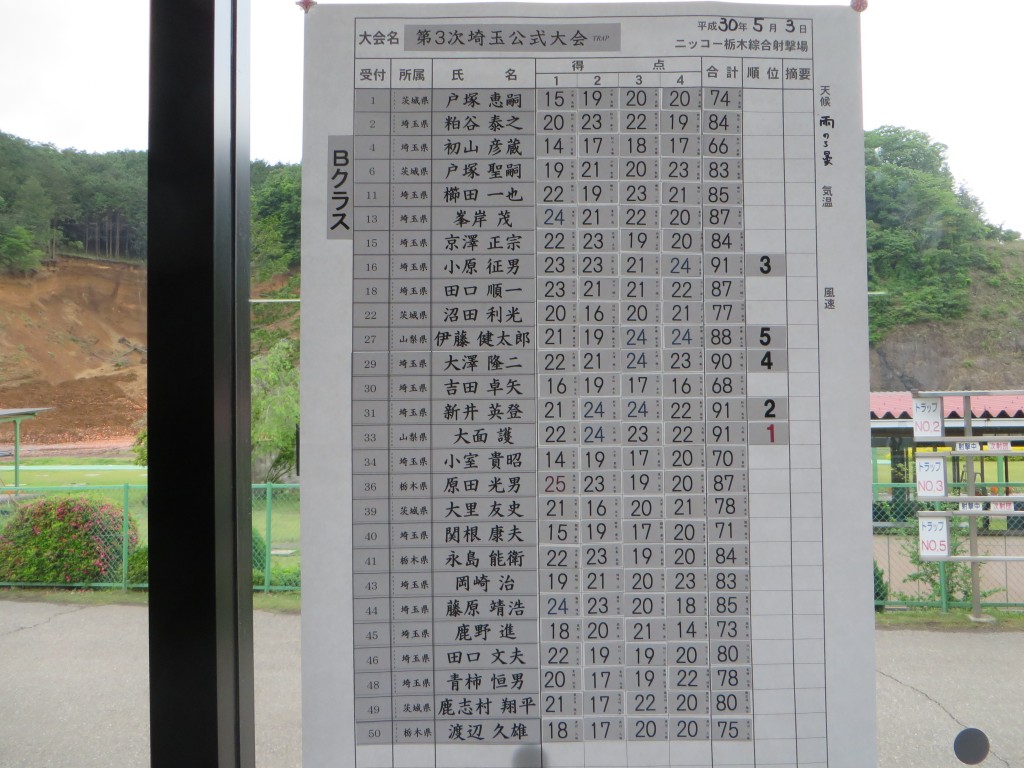 平成30年 5月 3日
大会名 第3次埼玉公式大会 TRAP
ニッコー栃木綜合射撃場
受付 所属 氏名 得点 合計 順位 摘要
1 2 3 4
Bクラス
1 茨城県 戸塚 恵嗣 15 19 20 20 74
2 埼玉県 粕谷 泰之 20 23 22 19 84
4 埼玉県 初山 彦蔵 14 17 18 17 66
6 茨城県 戸塚 聖嗣 19 21 20 23 83
11 埼玉県 櫛田 一也 22 19 23 21 85
13 埼玉県 峯岸 茂 24 21 22 20 87
15 埼玉県 京澤 正宗 22 23 19 20 84
16 埼玉県 小原 征男 23 23 21 24 91 3
18 埼玉県 田口 順一 23 21 21 22 87
22 茨城県 沼田 利光 20 16 20 21 77
27 山梨県 伊藤 健太郎 21 19 24 24 88 5
29 埼玉県 大澤 隆二 22 21 24 23 90 4
30 埼玉県 吉田 卓矢 16 19 17 16 68
31 埼玉県 新井 英登 21 24 24 22 91 2
33 山梨県 大面 護 22 24 23 22 91 1
34 埼玉県 小室 貴昭 14 19 17 20 70
36 栃木県 原田 光男 25 23 19 20 87
39 茨城県 大里 友史 21 16 20 21 78
40 埼玉県 関根 康夫 15 19 17 20 71
41 栃木県 永島 能衛 22 23 19 20 84
43 埼玉県 岡崎 治 19 21 20 23 83
44 埼玉県 藤原 靖浩 24 23 20 18 85
45 埼玉県 鹿野 進 18 20 21 14 73
46 埼玉県 田口 文夫 22 19 19 20 80
48 埼玉県 青柿 恒男 20 17 19 22 78
49 茨城県 鹿志村 翔平 21 17 22 20 80
50 栃木県 渡辺 久雄 18 17 20 20 75
天候 雨のち曇
気温
風速
トラップ
NO.2
射撃中
トラップ
NO.3
射撃中
トラップ
NO.5